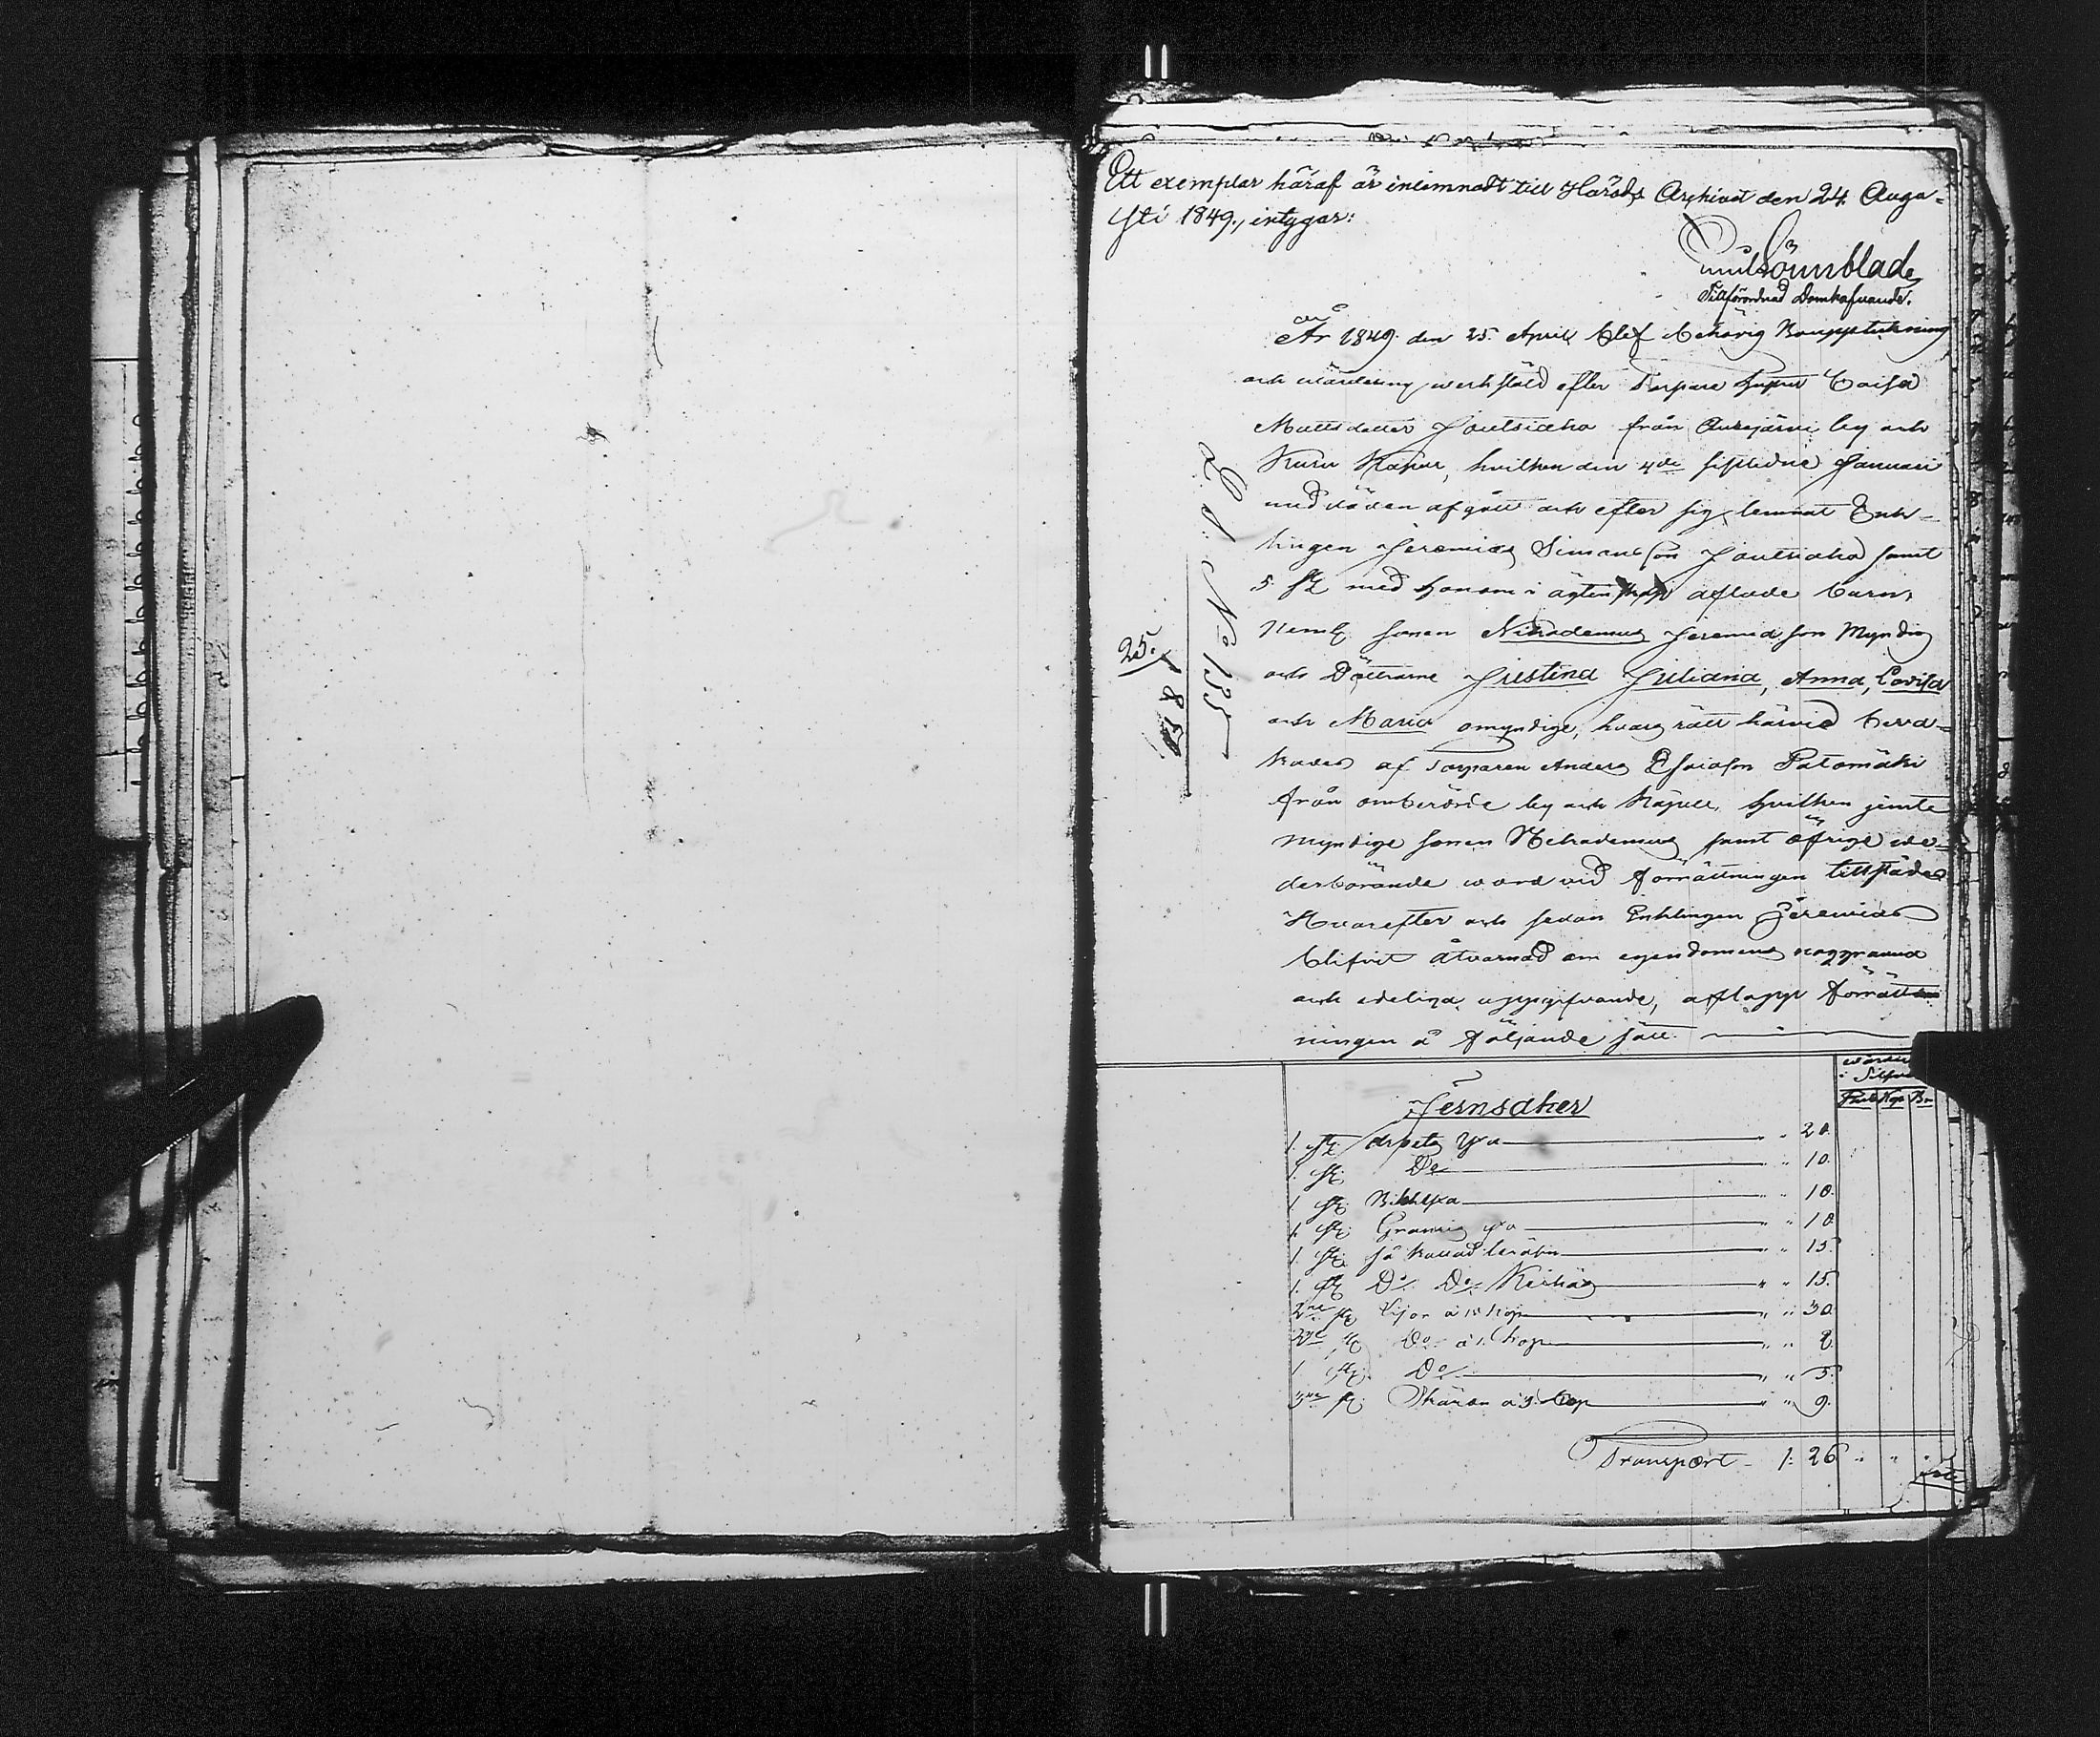 Ett exemplar häraf är inlemnadt till Härads Archivet den 24 Augu=
sti 1849., intygar:
Emil Lönnblad,
Tillförordnad Domhafvande.
År 1849. den 25. April blef behörig Bouppteckning
och värdering werkstäld efter Torpare hustrun Caisa
Mattsdotter Joutsiaho från Aurejärvi by och
Kuru Kapell, hvilken den 4de sistledne Januari
med döden afgått och efter sig lemnat Enk-
lingen Jeremias Simonsson Joutsiaho samt
5. st med honom i äktenskap aflade barn,
neml sonen Nikodemus Jeremiasson Myndig
och Döttrarne Justina Juliana, Anna, Lovisa
och Maria omyndige, hvars rätt härvid beva-
kades af Torparen Anders Esaiasson Patomäki
från omberörde by och Kapell, hvilken jemte
myndige sonen Nikodemus samt öfrige ve-
derbörande voro vid förrättningen tillstädes
Hvarefter och sedan Enklingen Jeremias
blifvit åtvarnad om egendomens noggranna
och redeliga uppgifvande, aflopp förrätt
ningen å följande sätt.
L. N No 135
25.
18
i Silfver
Rub Kop
Jernsaker
1. st yxa " " 20.
1. st Do " " 10.
1 st Bilyxa " " 10.
1. st yxa " " 10
1. st " " 15.
1. st Do Do " " 15.
2ne st Lijor a 15 kop " " 30.
2ne st Do a 1. kop " " 2
1 st Do " " 5.
3ne st Skäror a 3. kop " " 9.
Transport - 1: 26 " " "